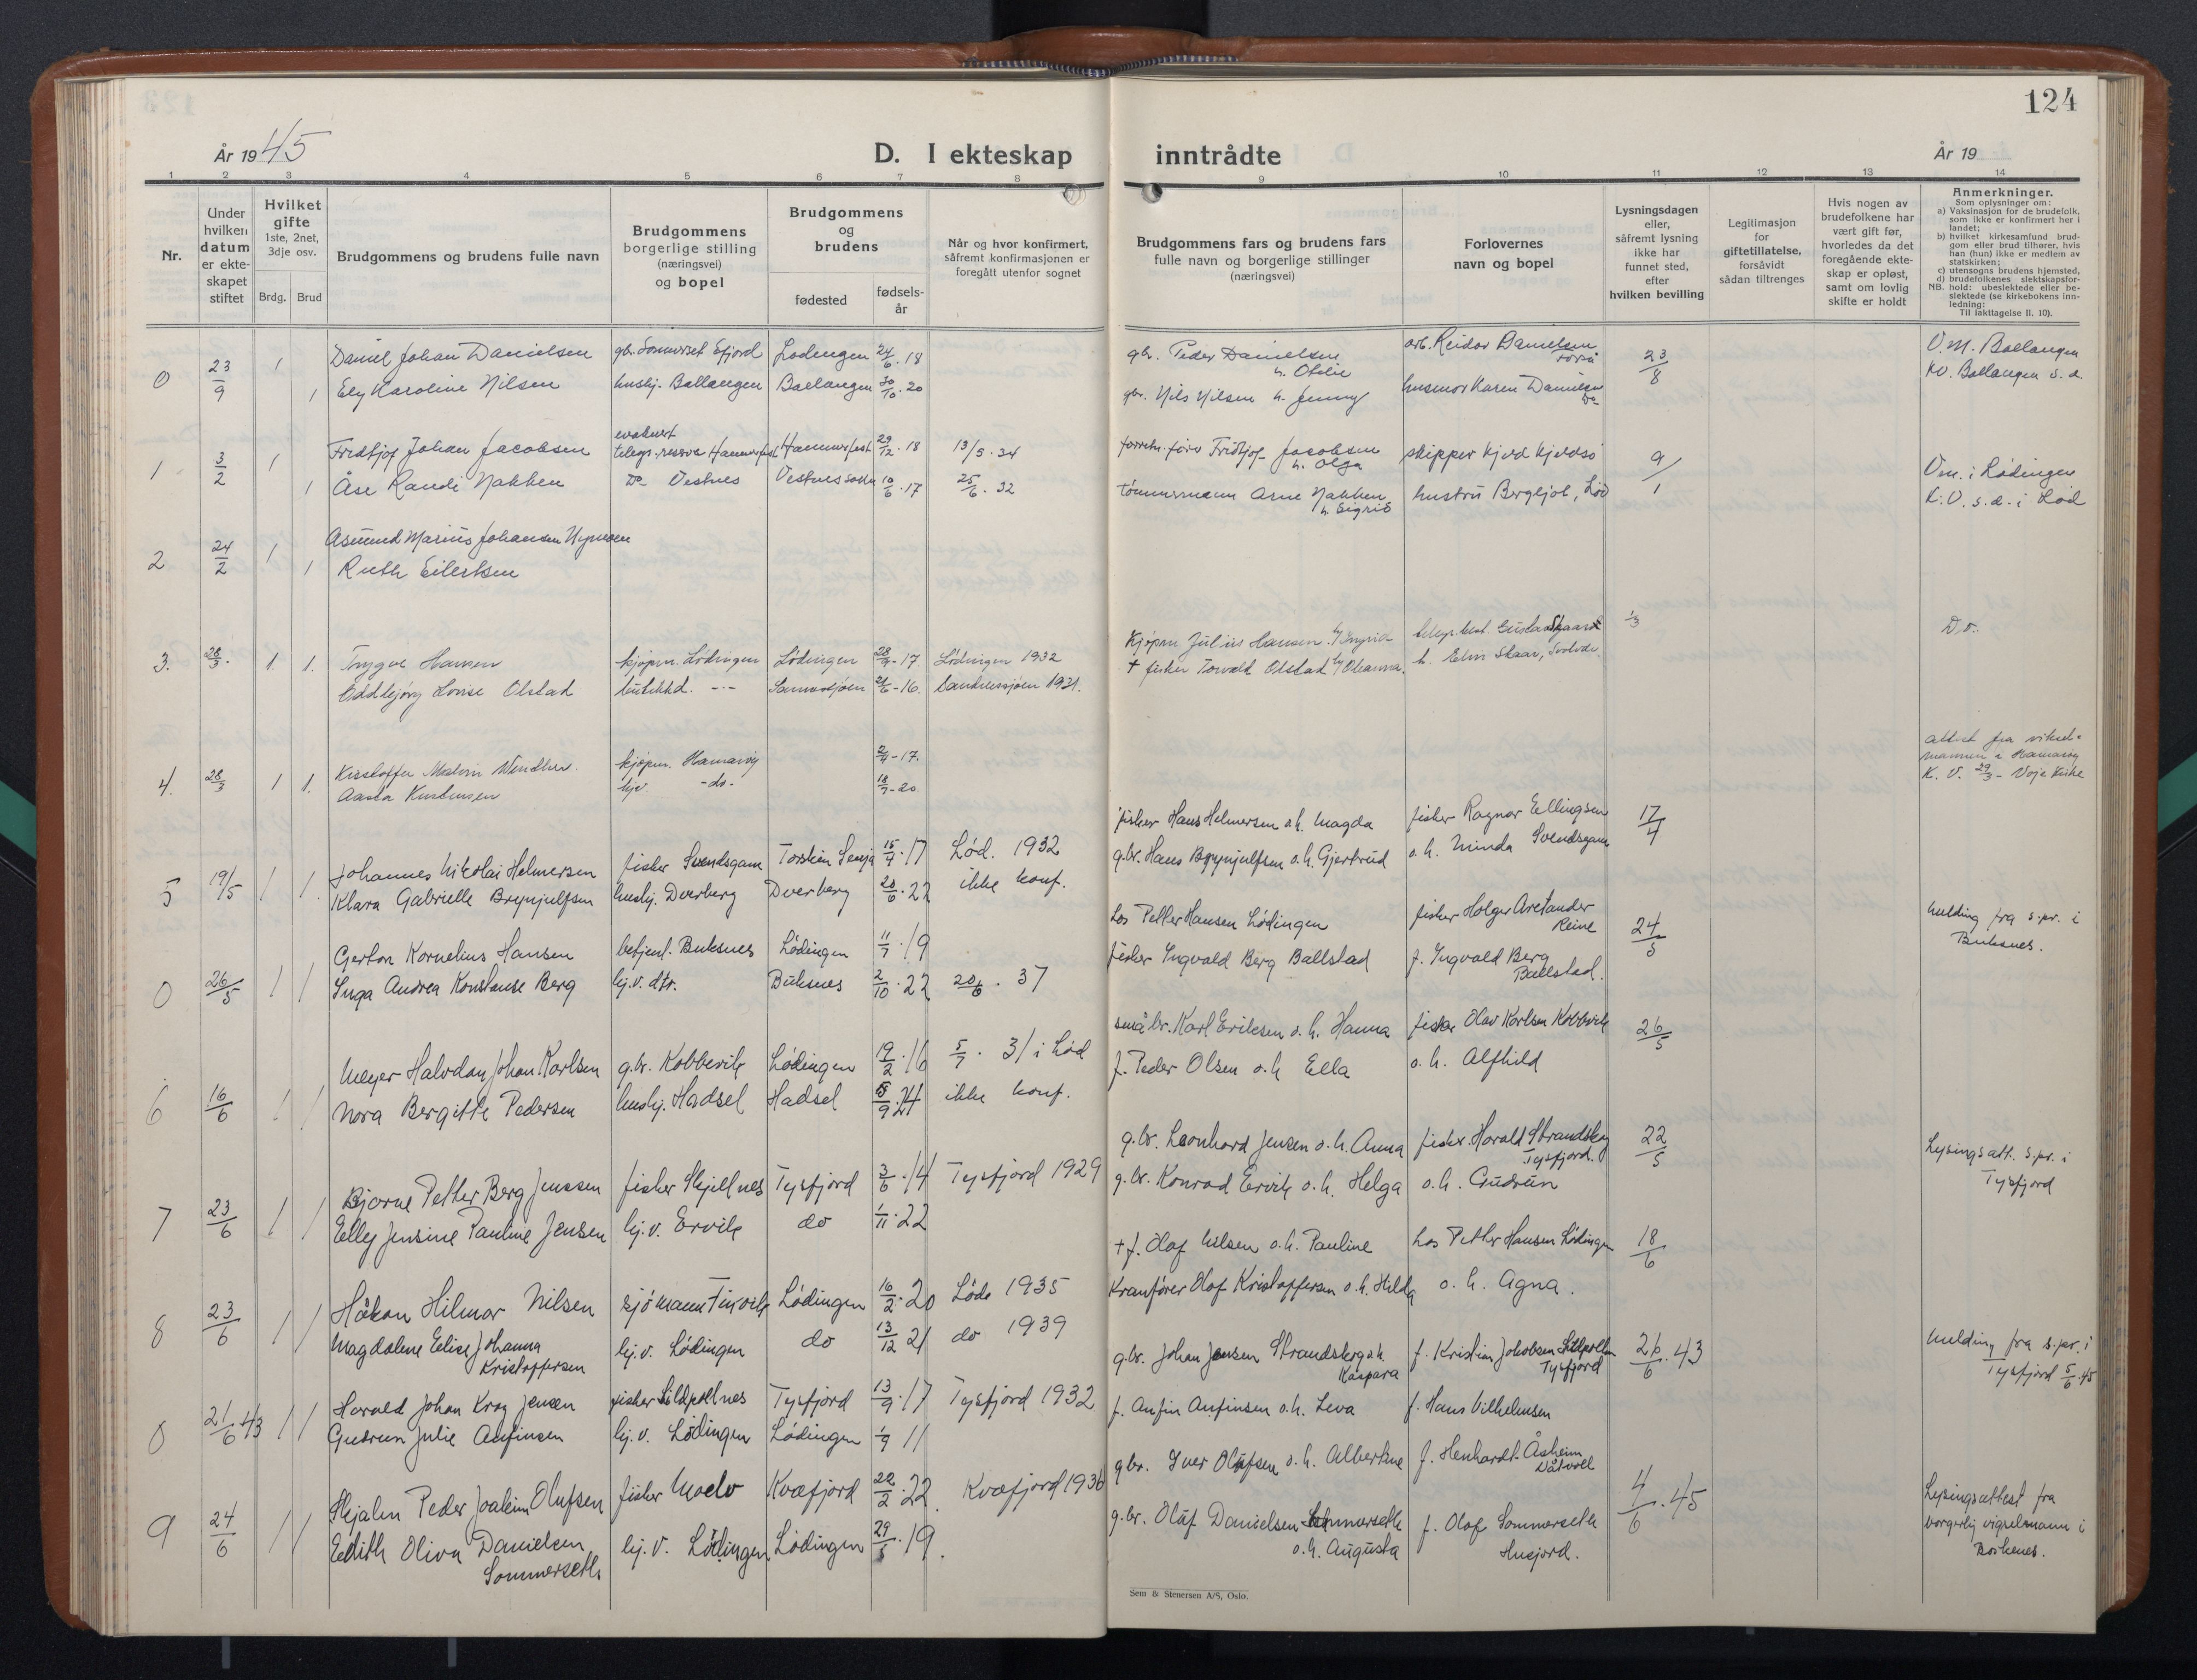 124
År 1945
D. I ekteskap inntrådte
År 19
1 2 3 4 5 6 7 8 9 10 11 12 13 14
Nr.
Under hvilken datum er ekteskapet stiftet
Hvilket gifte
1ste, 2net, 3dje osv.
Brdg. Brud
Brudgommens og brudens fulle navn
Brudgommens borgerlige stilling (næringsvei) og bopel
Brudgommens og brudens
fødested
fødselsår
Når og hvor konfirmert, såfremt konfirmasjonen er foregått utenfor sognet
Brudgommens fars og brudens fars fulle navn og borgerlige stillinger (næringsvei)
Forlovernes navn og bopel
Lysningsdagen eller, såfremt lysning ikke har funnet sted, efter hvilken bevilling
Legitimasjon for giftetillatelse, forsåvidt sådan tiltrenges
Hvis nogen av brudefolkene har vært gift før, hvorledes da det foregående ekteskap er opløst, samt om lovlig skifte er holdt
Anmerkninger.
Som oplysninger om:
a) Vaksinasjon for de brudefolk, som ikke er konfirmert her i landet;
b) hvilket kirkesamfund brudgom eller brud tilhører, hvis han (hun) ikke er medlem av statskirken;
c) utensogns brudens hjemsted,
d) brudefolkenes slektskapsforhold: ubeslektede eller beslektede (se kirkebokens innledning:
NB.
Til iakttagelse II. 10).
0 23/9 1 Daniel Johan Danielsen gbr. Sommerset Efjord Lødingen 24/6.18 gbr. Peder Danielsen arb. Reidar Danielsen 23/8 V.m. Ballangen
h. Otelie
1 Ely Karoline Nilsen hushj. Ballangen Ballangen 30/10.20 gbr. Nils Nilsen h. Jenny husmor Karen Danielsen do Kv. Ballangen s.d.
evakuert
1 3/2 1 Fridtjof Johan Jacobsen telegr.reserve Hammerfest Hammerfest 29/12.18 13/5.34 Fridtjof Jacobsen skipper Kjeld Kjeldsø 9/1 V.m. i Lødingen
h. Olga
1 Åse Randi Nakken Do Vestnes 10/6.17 25/6.32 tømmermann Arne Nakken hustru Bergljot, Lød K.V. s.d. i Lød
h. Sigrid
2 24/2 1 Asmund Marius Johansen
1 Ruth Eilertsen
3. 28/3. 1. 1. Trygve Hansen kjøpm. Lødingen Lødingen 28/9-17 Lødingen 1932 Kjøpm Julius Hansen h/ Ingrid 1/3 D.o.
Eddbjørg Lovise Olstad 21/6-16. Sandnessjøen 1931. + fisker Torvald Olstad h/ Oleanna. h. Elin Skaar, Svolvær.
4. 28/3 1 1. Kristoffer Malvin kjøpm. Hamarøy 2/4-17. attest fra vikselmannen i Hamarøy
Aasta Kristensen hjv. -do- 18/7-20. K.V. 29/3 - Voje Kirke
5 19/5 1 1 Johannes Nikolai Helmersen fisker Svendsgam Torskin Senja 15/4.17 Lød. 1932 fisker Hans Helmersen o.h. Magda fisker Ragnar Ellingsen 17/4
Klara Gabrielle Brynjulfsen hushj. Dverberg Dverberg 20/6.22 ikke konf. g.br. Hans Brynjulfsen o.h. Gjertrud o.h. Minda Svendsgam
0 26/5 1 1 Gerton Kornelius Hansen betjent. Buksnes Lødingen 11/7.19 Los Petter Hansen Lødingen fisker Holger Arctander Reine 24/5 Melding fra s.pr. i Buksnes.
Inga Andrea Konstanse Berg hj.v. dtr. Buksnes 2/10.22 20/6. 37 fisker Ingvald Berg Ballstad f. Ingvald Berg Ballstad.
6 16/6 1 1 Meyer Halvdan Johan Karlsen g.br. Kobbevik Lødingen 19/2.16 5/7. 31 i Lød småbr. Karl Eriksen o.h. Hanna fisker Olav Karlsen Kobbvik 26/5
Nora Bergitte Pedersen hushj. Hadsel Hadsel 5/9.24 ikke konf. f. Peder Olsen o.h Ella o.h. Alfhild
7 23/6 1 1 Bjarne Petter Berg Jenssen fisker Skjellnes Tysfjord 3/6.14 Tysfjord 1929 g.br. Leonhard Jensen o.h. Anna fisker. Harald Strandskog Tysfjord. 22/5 Lysingsatt. s.pr. i Tysfjord
Elly Jensine Pauline Jensen hj.v. Ervik do 1/11.22 g.br. Konrad Ervik o.h. Helga o.h. Gudrun
8 23/6 1 1 Håkon Hilmar Nilsen sjømann Tinvik Lødingen 16/2.20 Løde 1935 + f. Olaf Nilsen o.h. Pauline Los Petter Hansen Lødingen 18/6
Magdalene Elise Johanna Kristoffersen hj.v. Lødingen do 13/12 21 do 1939 Kranfører Olaf Kristoffersen o.h. Hilda o.h. Agna.
0 21/6 43 1 1 Harald Johan Krog Jensen fisker Sildpollnes Tysfjord 13/9.17 Tysfjord 1932 g.br. Johan Jensen Strandskog o.h. Kaspara f. Kristian Jakobsen Sildpollen Tysfjord 26/6.43 Melding fra s.pr. i Tysfjord 5/6.45
Gudrun Julie Anfinsen hj.v. Lødingen Lødingen 1/9 11 f. Anfin Anfinsen o.h. Leva f. Hans Vilhelmsen
9 24/6 1 1 Skjalm Peder Joakim Olufsen fisker Kvæfjord 22/2.22. Kvæfjord 1936 gbr. Iver Olufsen o.h. Albertine f. Henhardt Åsheim 4/6.45 Lysingsattest fra borgerlig vigselsmann i Borkenes.
Edith Oliva Danielsen Sommerseth hj.v. Lødingen Lødingen 29/5.19. g.br. Oluf Danielsen Sommerseth o.h. Augusta f. Olaf Sommerseth Husjord.
Sem & Stenersen A/S, Oslo.